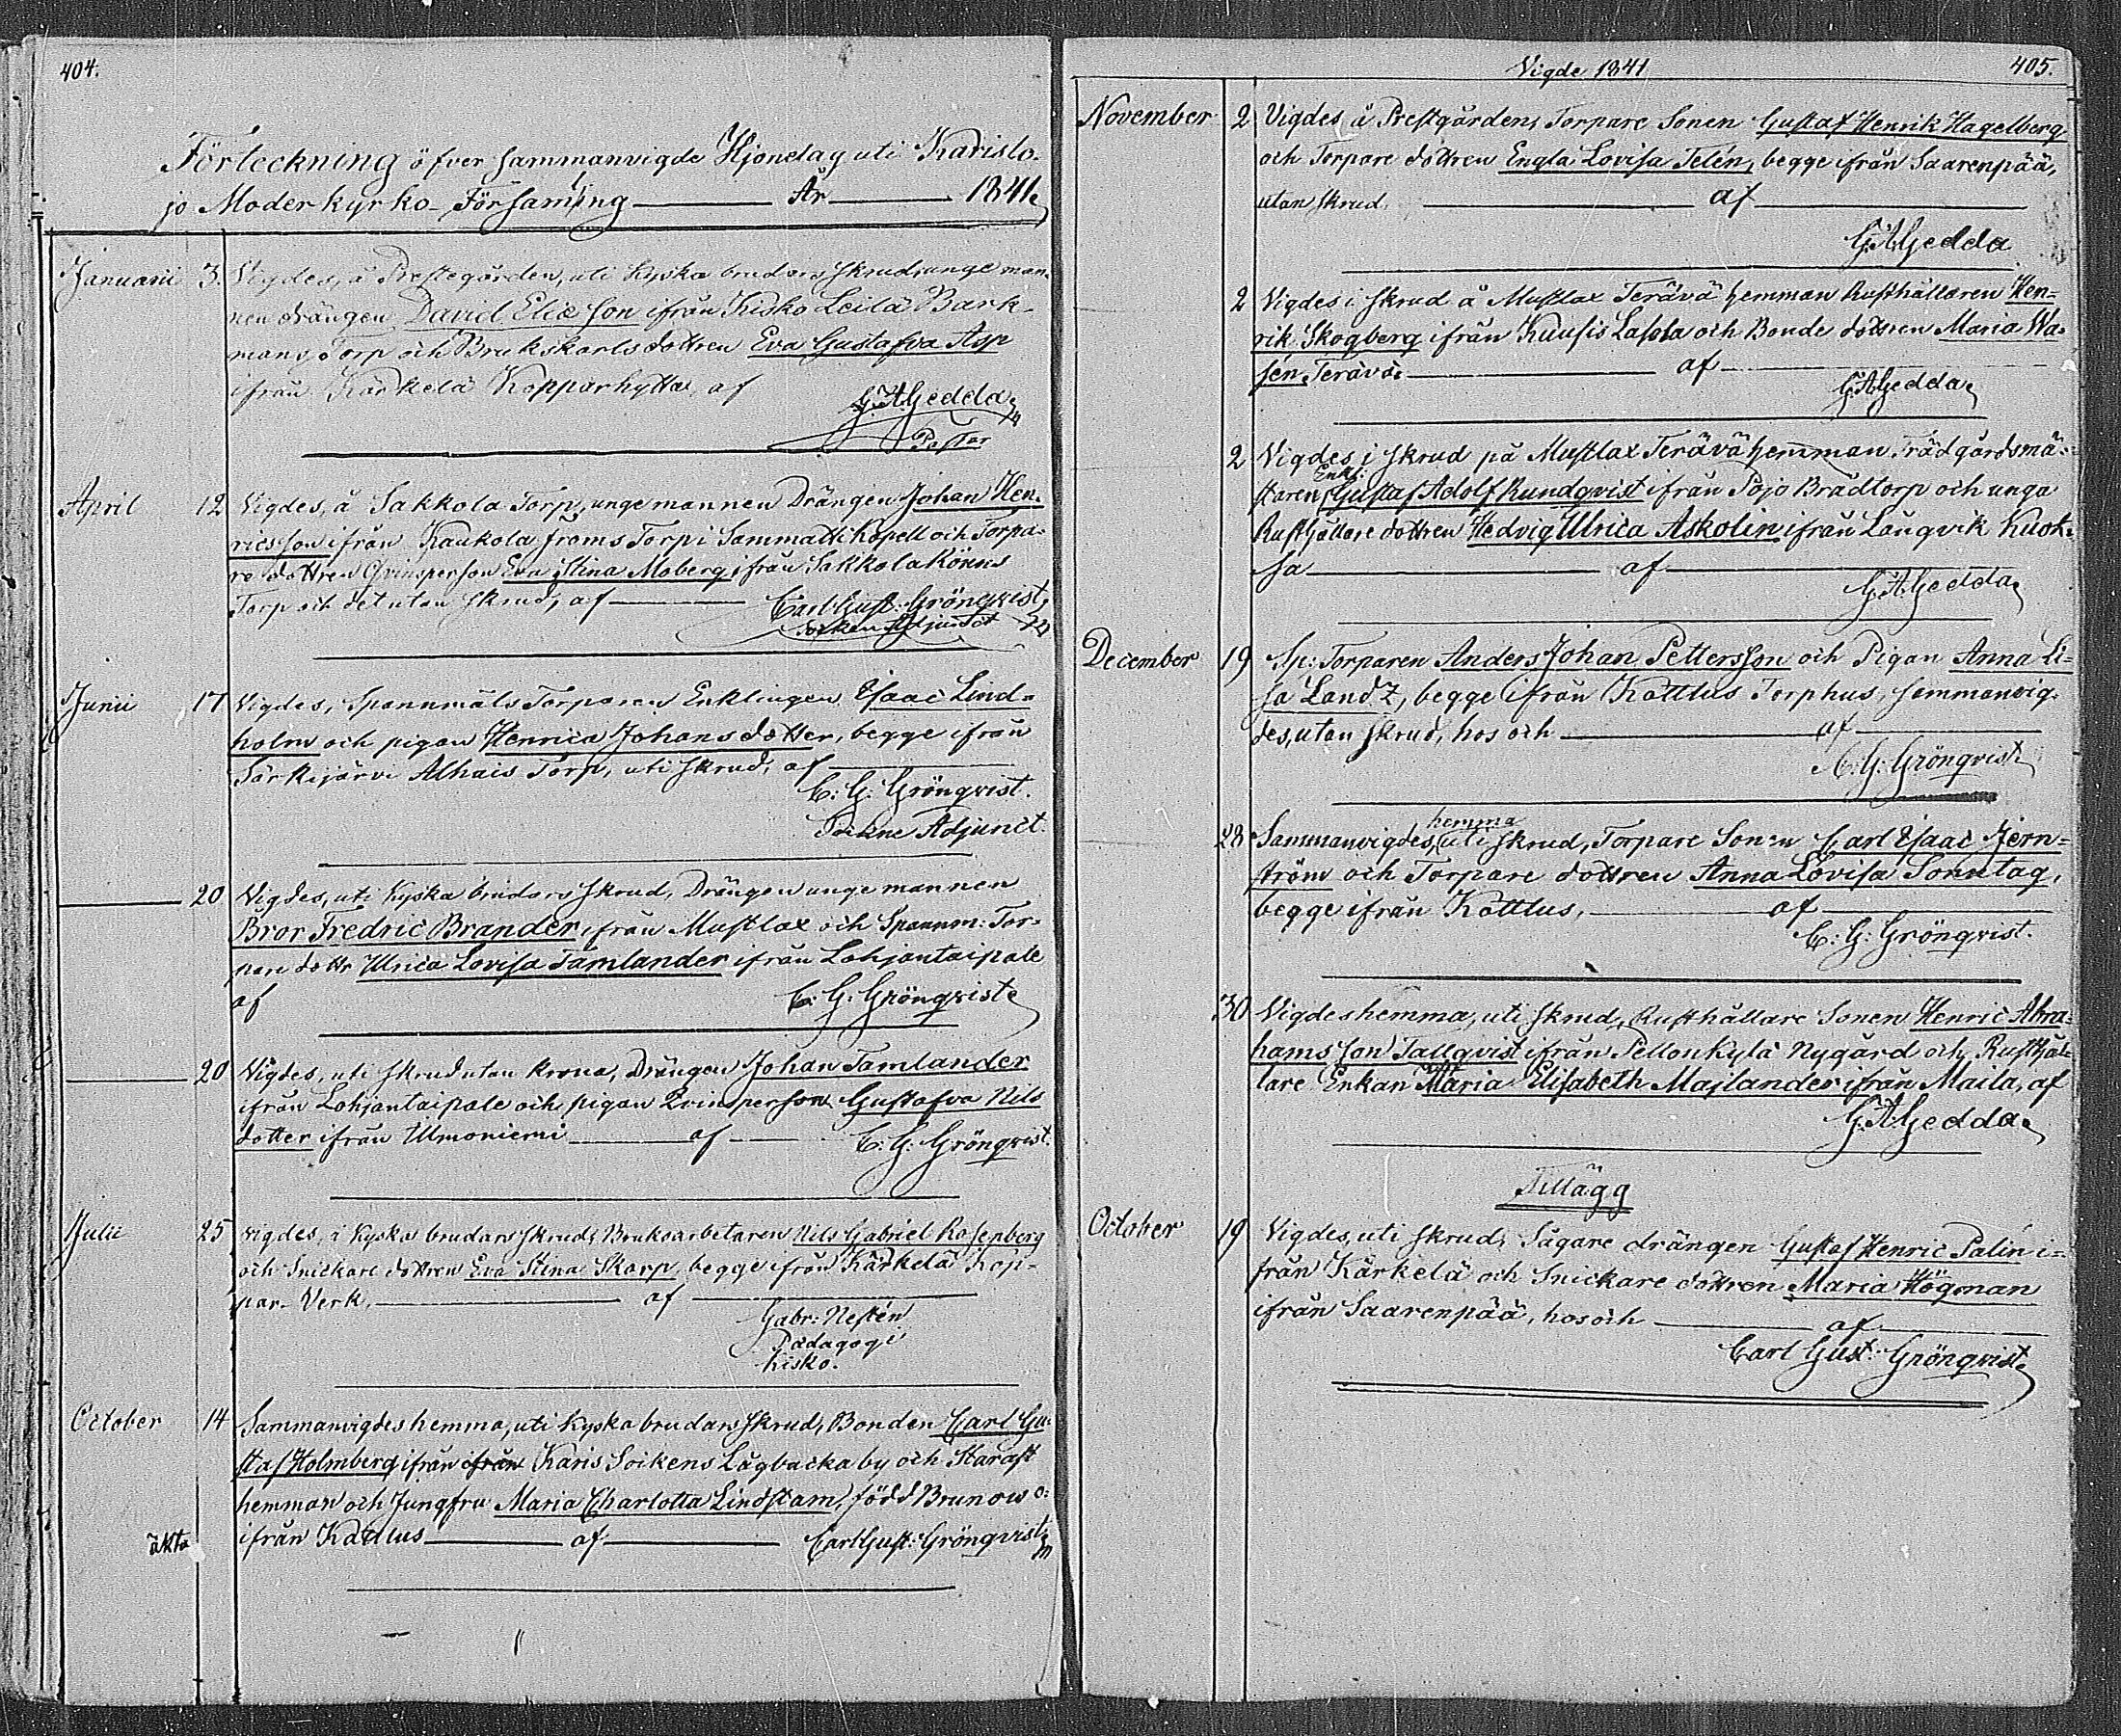 404.
Förteckning öfver sammanvigde Hjonelag uti Karislo-
jo Moderkyrko-Församling År 1841.
Januarii 3. Vigdes, å Prestegården, uti kyska brudars skrud, unge man-
nen drängen David Elieson ifrån Kisko Leilä Bark-
mans Torp och Brukskarls dottren Eva Gustafva Asp
ifrån Kärkelä Kopparhytta, af
G. A. Gedda
Pastor
April 12 Vigdes, å Sakkola Torp, unge mannen Drängen Johan Hen-
ricsson ifrån Kaukola Torp i Sammatti Kapell och Torpa-
re dottren Qvinsperson Eva Stina Moberg ifrån Sakkola Könns
Torp och det utan skrud, af Carl Gust: Grönqvist,
Socken Adjunct
Junii 17 Vigdes, Spannmåls Torparen Enklingen Isaac Lind-
holm och pigan Henrica Johans dotter, begge ifrån
Särkijärvi Alhais Torp, uti skrud, af
C: G: Grönqvist.
Sockne Adjunct.
20 Vigdes, uti kyska brudars skrud, Drängen unge mannen
Bror Fredric Brander ifrån Mustlax och Spannm: Tor-
pare dottr Ulrica Lovisa Tamlander ifrån Lohjantaipale
af C: G: Grönqvist
20 Vigdes, uti skrud utan krona, Drängen Johan Tamlander
ifrån Lohjantaipale och pigan Qvinsperson Gustafva Nils
dotter ifrån Ulmoniemi af C: G: Grönqvist.
Julii 25 Vigdes, i kyska brudars skrud, Bruksarbetaren Nils Gabriel Rosenberg
och Snickare dottren Eva Stina Skarp begge ifrån Kärkelä Kop-
par-Verk, af
Gabr: Nestén
Pædagog i
Kisko.
October 14 Sammanvigdes hemma, uti kyska brudars skrud, Bonden Carl Gu-
staf Holmberg ifrån ifrån Karis Sockens Lågbacka by och Starast
hemman och Jungfru Maria Charlotta Lindstam, född Brunow o:
äkta ifrån Kattlus af Carl Gust: Grönqvist
Vigde 1841 405.
November 2 Vigdes å Prestgården, Torpare Sonen Gustaf Henrik Hagelberg
och Torpare dottren Engla Lovisa Telén, begge ifrån Saarenpää,
utan skrud, af
G. A. Gedda
2 Vigdes i skrud å Mustlax Terävä hemman Rusthållaren Hen-
rik Skogberg ifrån Kuusis Lassla och Bonde dottren Maria Wa-
sén, Terävä. af
G. A. Gedda
2 Vigdes i skrud på Mustlax Terävä hemman Trädgårdsmä-
staren Enkl: Gustaf Adolf Rundqvist ifrån Pojo Brädtorp och unga
Rusthållare dottren Hedvig Ulrica Askolin ifrån Långvik Kuok-
sa af
G. A. Gedda
December 19 Sp: Torparen Anders Johan Pettersson och Pigan Anna Li-
sa Landz, begge ifrån Kattlus Torphus, sammanvig-
des, utan skrud, hos och af
C: G: Grönqvist
28 Sammanvigdes, hemma uti skrud, Torpare Sonen Carl Isaac Jern-
ström och Torpare dottren Anna Lovisa Sonntag,
begge ifrån Kattlus, af
C: G: Grönqvist.
30 Vigdes hemma, uti skrud, Rusthållare Sonen Henric Abra-
hams son Tallqvist ifrån Pellonkylä Nygård och Rusthål-
lare Enkan Maria Elisabeth Majlander ifrån Maila, af
G. A. Gedda
Tillägg
October 19 Vigdes, uti skrud, Sågare drängen Gustaf Henric Palin i-
från Kärkelä och Snickare dottren Maria Högman
ifrån Saarenpää, hos och af
Carl Gust: Grönqvist